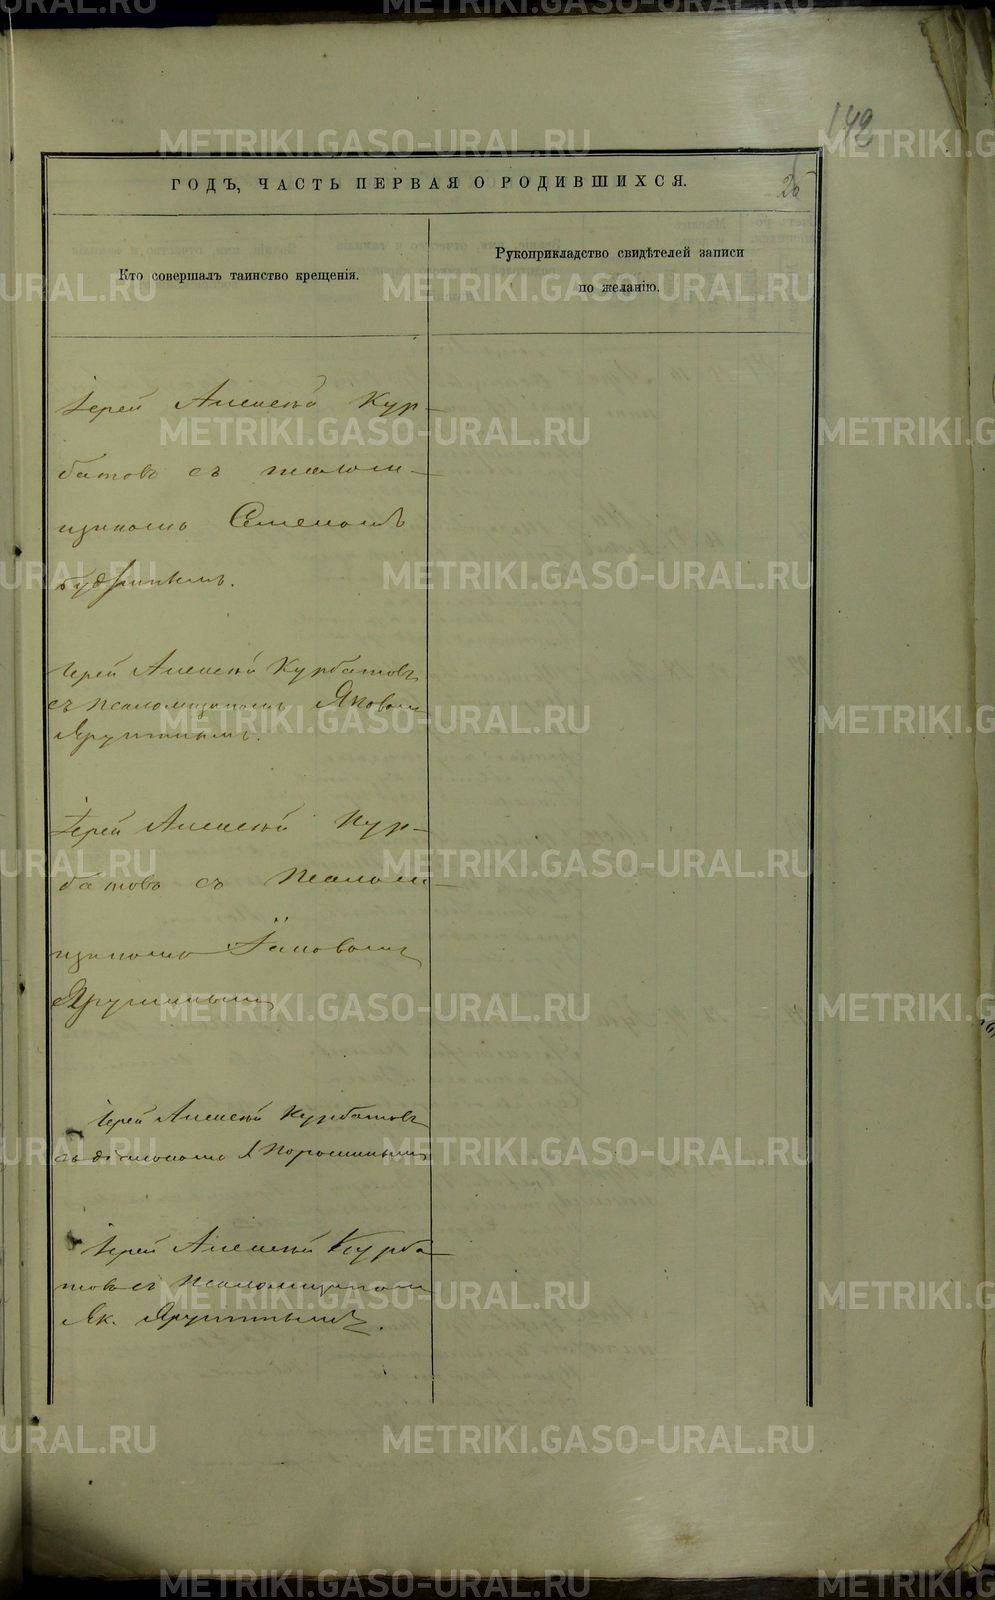 142
26
ГОДЪ, ЧАСТЬ ПЕРВАЯ О РОДИВШИХСЯ.
Кто совершалъ таинство крещенія.
Рукоприкладство свидѣтелей записи
по желанію.
Іерей Алексѣй Кур-
батовъ съ псалом-
щикомъ Семеномъ
Іерей Алексѣй Курбатовъ
съ псаломщикомъ Яковомъ
Ярутинымъ.
Іерей Алексѣй Кур-
батовъ съ псалом-
щикомъ Іаковомъ
Ярушинымъ
Іерей Алексѣй Курбатовъ
съ діакономъ Порошинымъ
Іерей Алексѣй Курба-
товъ съ псаломщикомъ
Як. Ярутинымъ.
METRIKI.GASO-URAL.RU